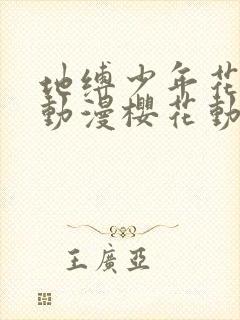 地缚少年花
動漫櫻花動
王廣亞